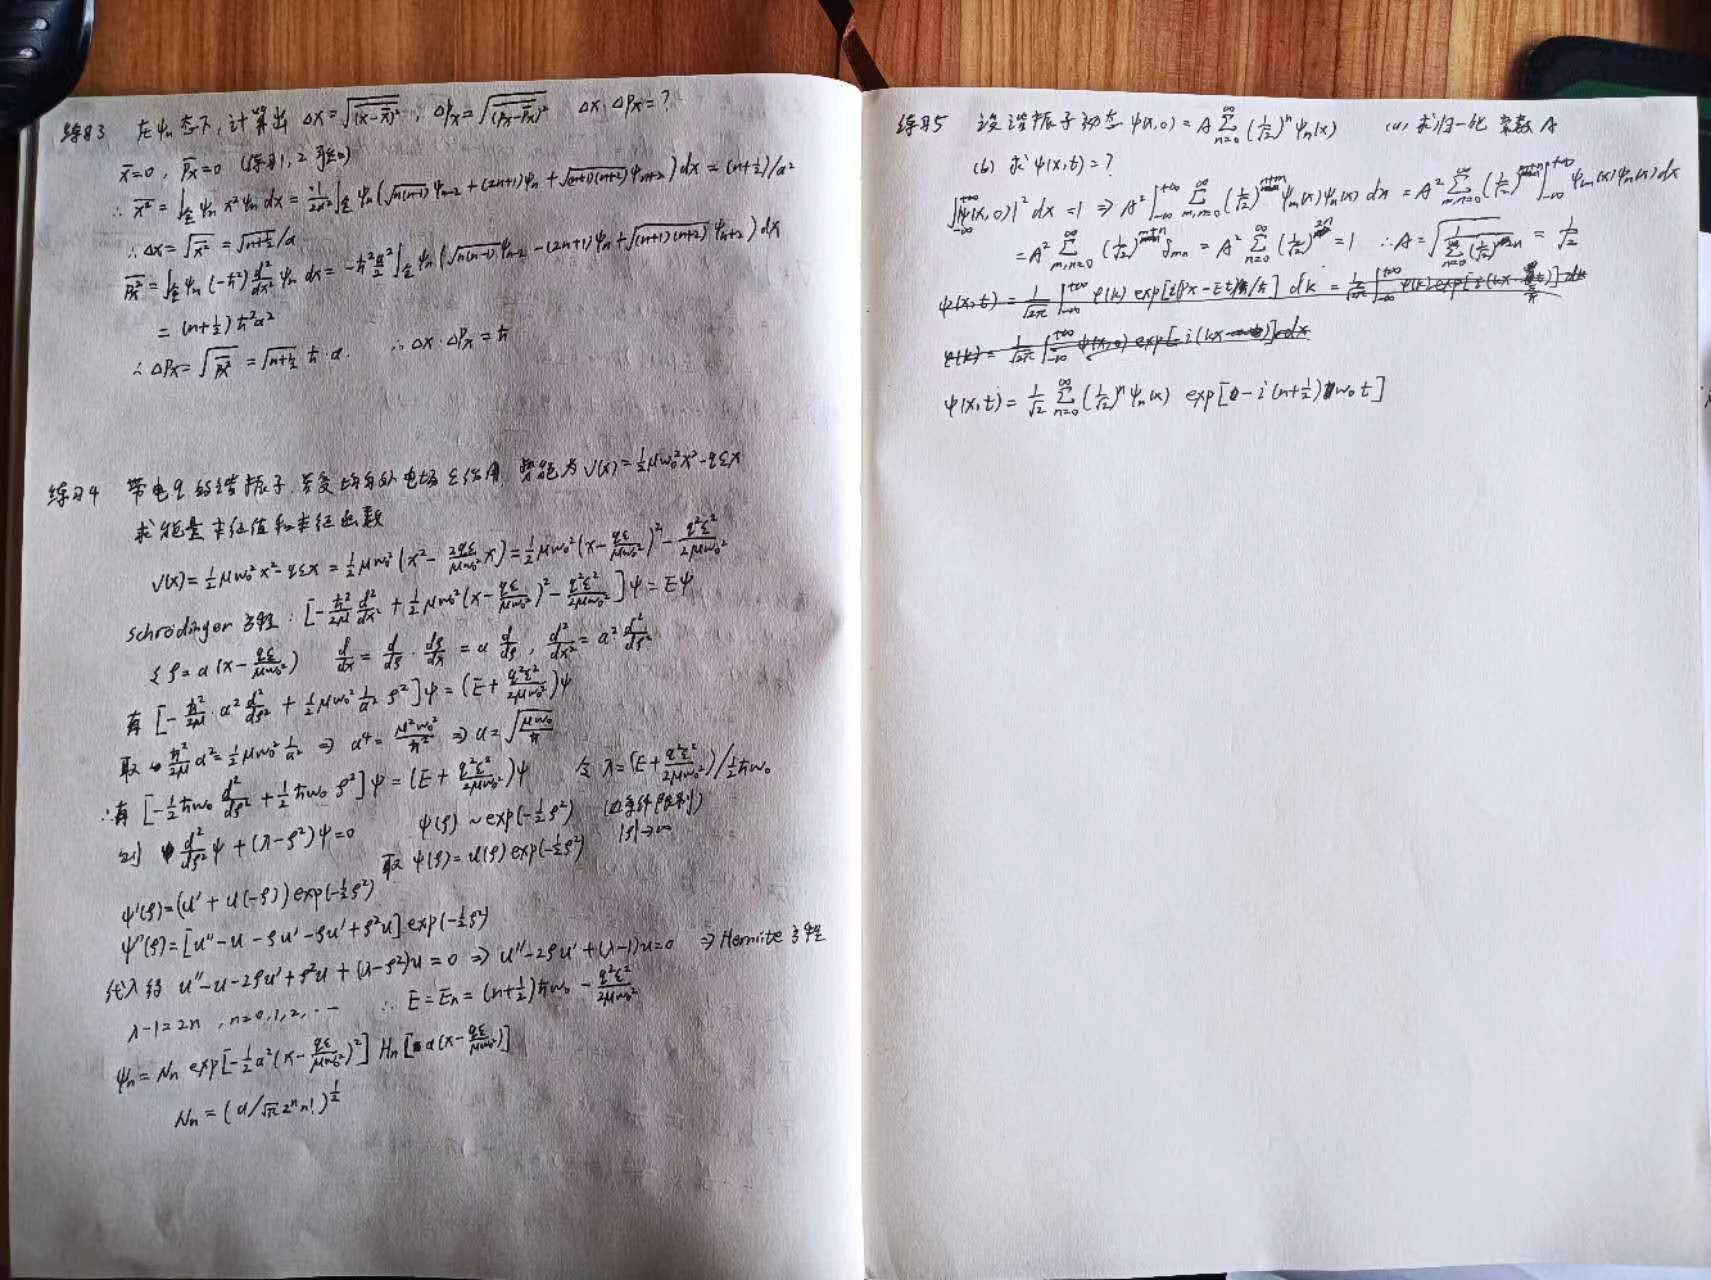 练习3 在ψn态下,计算出 Δx=√(x-x̄)² , ΔPx=√(Px-P̄x)² Δx·ΔPx=?
x̄=0, P̄x=0 (练习1,2 可知)
∴ x̄² = ∫全 ψn x² ψn dx = 1/2α² ∫全 ψn(√n(n-1) ψn-2 + (2n+1)ψn + √(n+1)(n+2) ψn+2) dx = (n+½)/α²
∴ Δx = √x̄² = √n+½/α
P̄x² = ∫全 ψn (-ħ²) d²/dx² ψn dx = -ħ² α²/2 ∫全 ψn(√n(n-1) ψn-2 - (2n+1)ψn + √(n+1)(n+2) ψn+2) dx
= (n+½)ħ²α²
∴ ΔPx = √P̄x² = √n+½ ħ·α. ∴ Δx·ΔPx = ħ
练习4 带电q的谐振子,若受均匀外电场ε作用,势能为 V(x)=½μω0²x²-qεx
求能量本征值和本征函数
V(x)=½μω0²x²-qεx = ½μω0²(x² - 2qε/μω0² x) = ½μω0²(x - qε/μω0²)² - q²ε²/2μω0²
schrödinger方程: [-ħ²/2μ d²/dx² + ½μω0²(x - qε/μω0²)² - q²ε²/2μω0²]ψ = Eψ
令 ρ=α(x - qε/μω0²) d/dx = d/dρ · dρ/dx = α d/dρ , d²/dx² = α² d²/dρ²
有 [-ħ²/2μ · α² d²/dρ² + ½μω0² 1/α² ρ²]ψ = (E + q²ε²/2μω0²)ψ
取 ħ²/2μ α² = ½μω0² 1/α² ⇒ α⁴ = μ²ω0²/ħ² ⇒ α=√μω0/ħ
∴有 [-½ħω0 d²/dρ² + ½ħω0 ρ²]ψ = (E + q²ε²/2μω0²)ψ 令 λ=(E + q²ε²/2μω0²)/½ħω0
则 d²/dρ² ψ + (λ-ρ²)ψ=0 ψ(ρ) ~ exp(-½ρ²) (边条件限制)
|ρ|→∞
取 ψ(ρ) = u(ρ) exp(-½ρ²)
ψ'(ρ) = (u' + u(-ρ)) exp(-½ρ²)
ψ''(ρ) = [u'' - u - ρu' - ρu' + ρ²u] exp(-½ρ²)
代入得 u'' - u - 2ρu' + ρ²u + (λ-ρ²)u = 0 ⇒ u'' - 2ρu' + (λ-1)u = 0 ⇒ Hermite方程
λ-1=2n , n=0,1,2,… ∴ E=En=(n+½)ħω0 - q²ε²/2μω0²
ψn = Nn exp[-½α²(x - qε/μω0²)²] Hn[α(x - qε/μω0²)]
Nn = (α/√π 2ⁿ n!)^½
练习5 设谐振子初态 ψ(x,0) = A ∑n=0^∞ (1/√2)ⁿ ψn(x) (a) 求归一化常数A
(b) 求ψ(x,t)=?
∫-∞^+∞ |ψ(x,0)|² dx = 1 ⇒ A² ∫-∞^+∞ ∑m,n=0^∞ (1/√2)^m+n ψm(x)ψn(x) dx = A² ∑m,n=0^∞ (1/√2)^m+n ∫-∞^+∞ ψm(x)ψn(x) dx
= A² ∑m,n=0^∞ (1/√2)^m+n δmn = A² ∑n=0^∞ (1/√2)^2n = 1 ∴ A = √1/∑n=0^∞ (1/√2)^2n = 1/√2
ψ(x,t) = 1/√2 ∑n=0^∞ (1/√2)ⁿ ψn(x) exp[-i(n+½)ω0t]